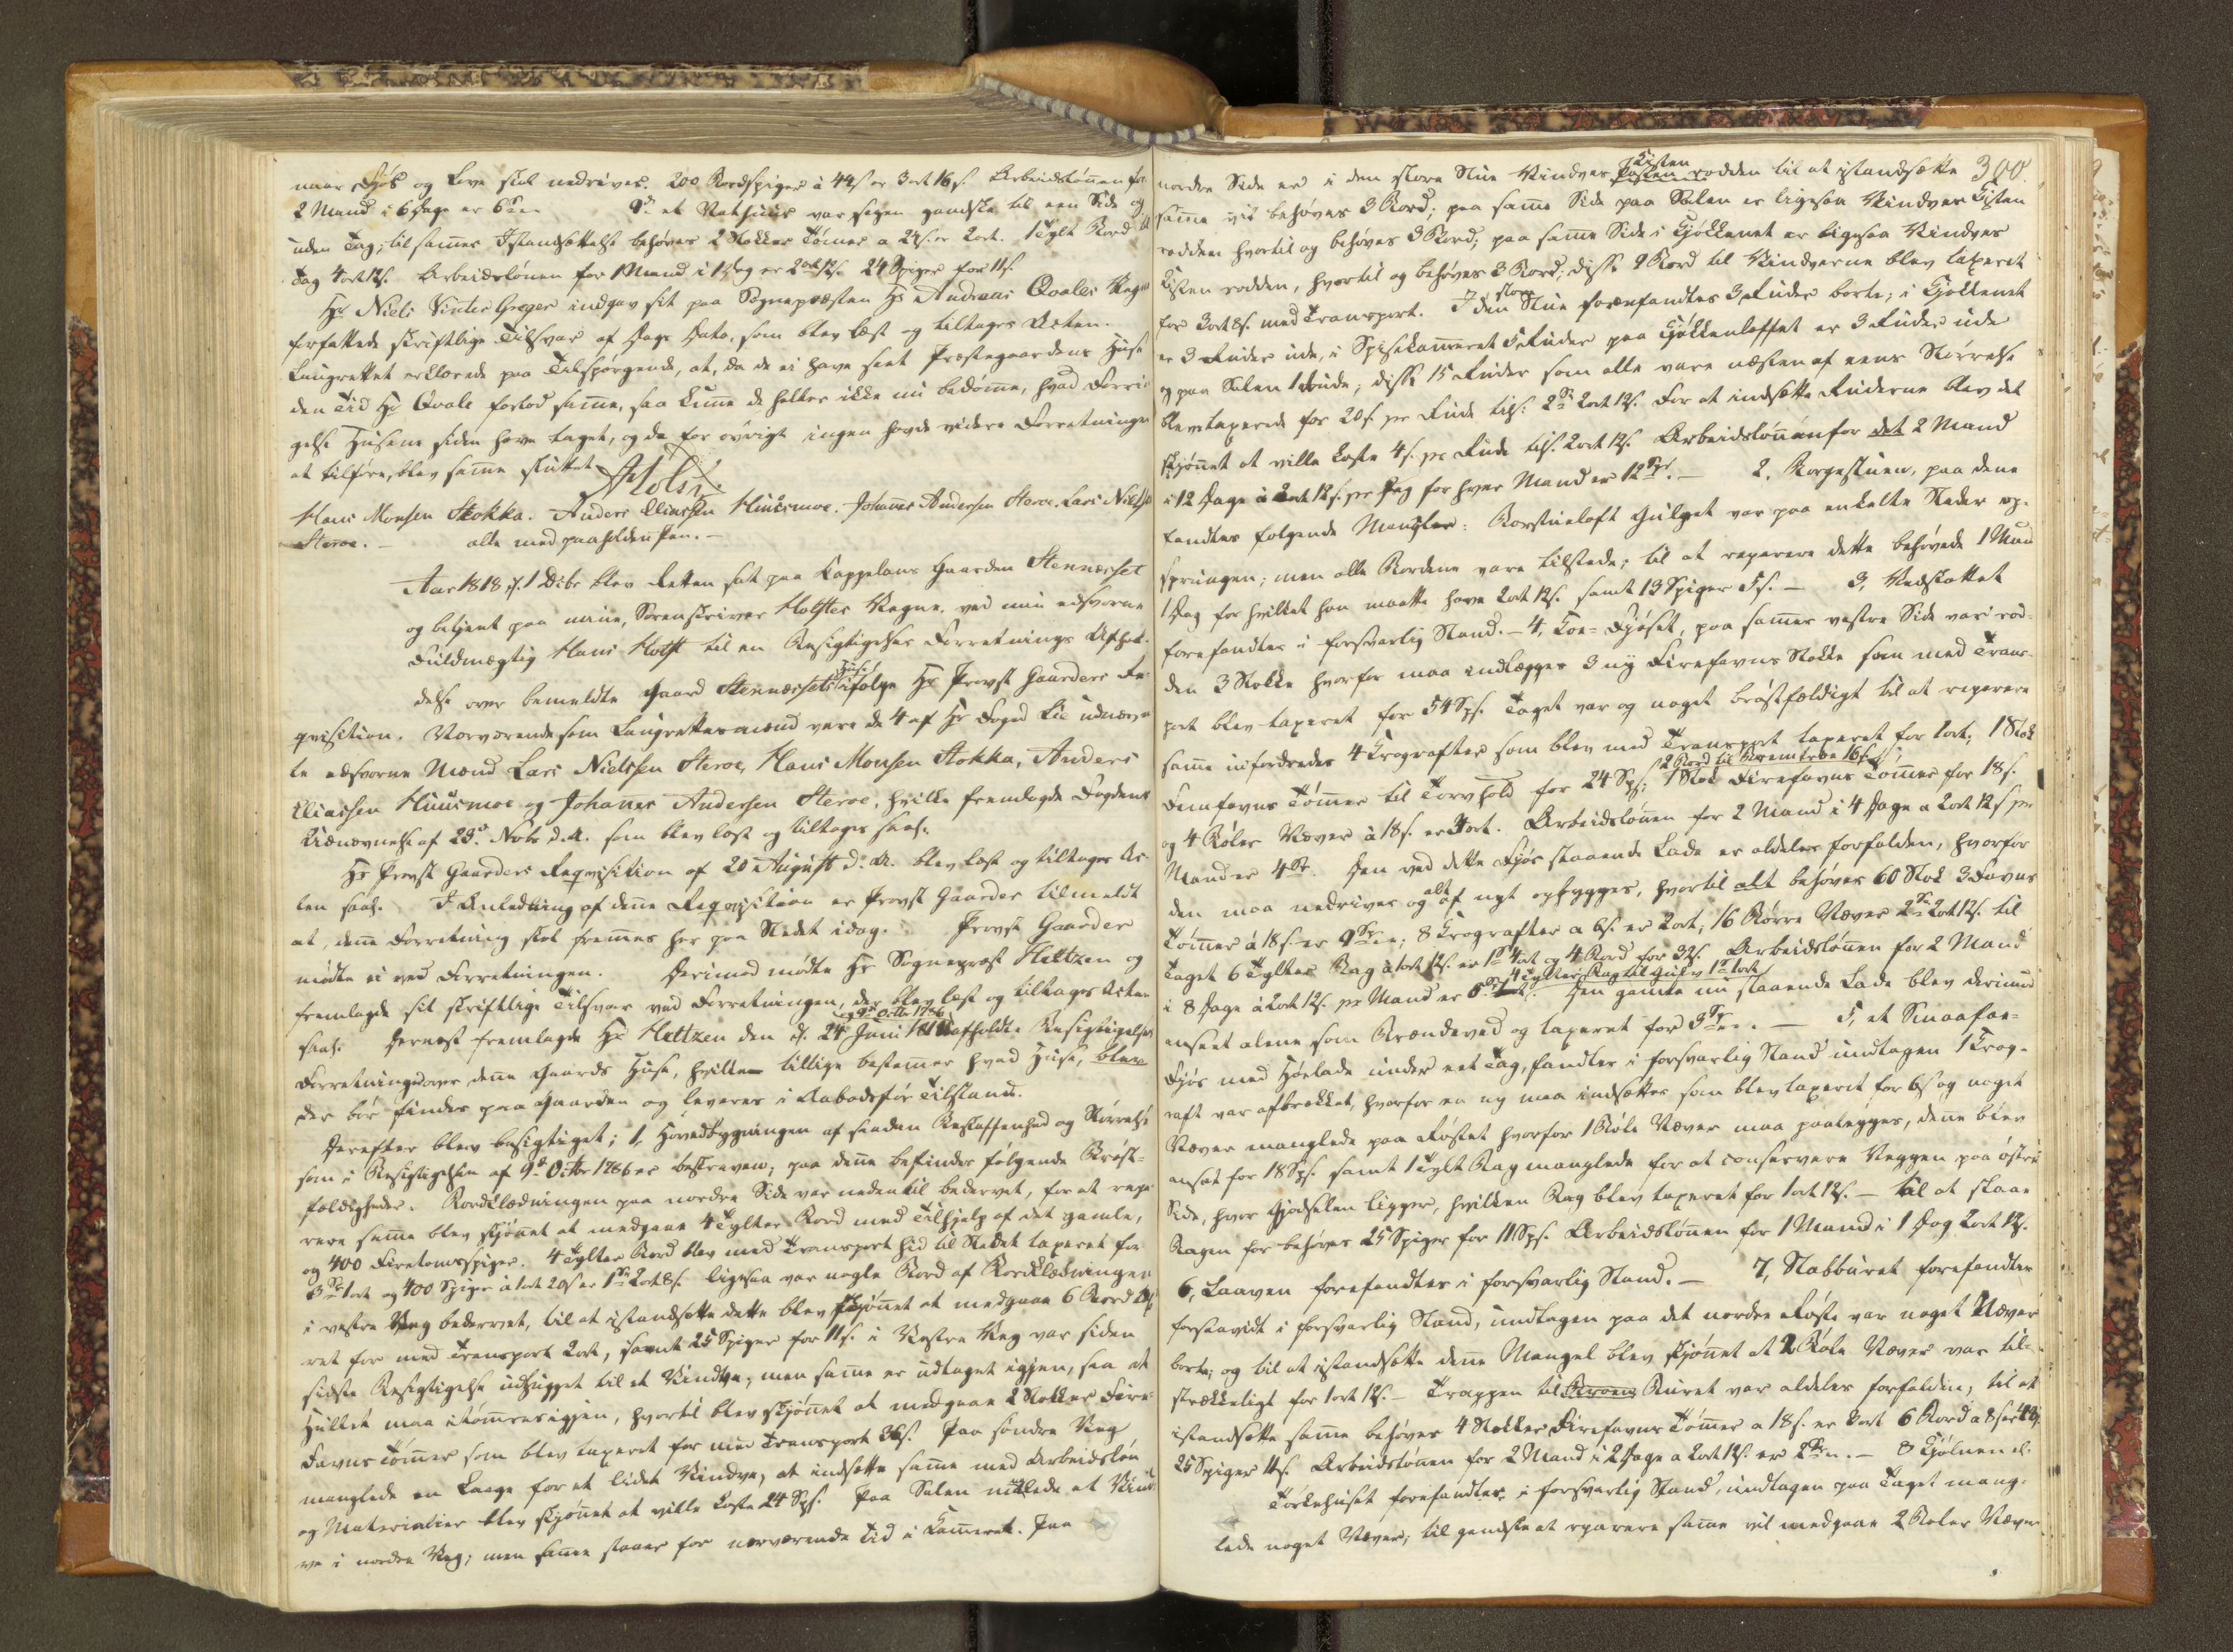 naar Fjøs og Løe skal nedrives. 200 Bordspiger à 44 s er 3 ort 16 s. Arbeidslønnen for
2 Mand i 6 Dage er 6 Sp. 9de et Vathuus var seget gandske til een Side og
uden Tag; til sammes Istandsættelse behøves 2 Stokker Tømer a 24 s. er 2 ort. 1 Tylt Bord til
Tag 4 ort 12 s. Arbeidslønen for 1 Mand i 1 Dag er 2 ort 12 s. 24 Spiger for 11 s.
Hr Niels Vinter Greger indgav sit paa Sognepræsten Hr Andreas Qvales Vegne
forfattede skriftlige Tilsvar af Dags Dato, som blev læst og tiltages Acten.
Laugrettet erklærede paa Tilspørgende, at, da de ei have seet Præstegaardens Huse
den Tid Hr Qvale forlod samme, saa kunne de heller ikke nu bedømme, hvad Forrin
gelse Husene siden have taget, og da for øvrigt ingen havde videre Forretningen
at tilføre, blev samme sluttet Holst.
Hans Monsen Stokka. Anders Eliassen Huusmoe. Johannes Andersen Steroe. Lars Nielsen
Steroe. – alle med paaholden Pen. –
Aar 1818 d. 1 Debr blev Retten sat paa Kappelans Gaarden Stennesset
og betjent paa mine, Sorenskriver Holster Vegne, ved min edsvorne
Fuldmægtig Hans Holst til en Besigtigelses Forretnings Afhol-
delse over bemeldte Gaard Stennessets Huse ifølge Hr Provst Gaarders Re-
qvisition. Nærværende som Laugrettesmænd vare de 4 af Hr Foged Lie udnævn
te edsvorne Mænd Lars Nielssen Steroe, Hans Monsen Stokka, Anders
Eliassen Huusmoe og Johannes Andersen Steroe, hvilke fremlagde Fogdens
Udnævnelse af 23de Novbr d. A. som blev læst og tiltages saal.
Hr Provst Gaarders Reqvisition af 20 August d. A. blev læst og tiltages Ac-
ten saal. I Anledning af denne Reqvisition er Provst Gaarder tilmeldt
at, denne Forretning skal fremmes her paa Stedet idag. Provst Gaarder
mødte ei ved Forretningen. Derimod mødte Hr Sognepræst Heltzen og
fremlagde sit skriftlige Tilsvar ved Forretningen, der blev læst og tiltages Acten
saal. Dernæst fremlagde Hr Heltzen den d. 24 Juni og 9de Octbr 1786 afholdte Besigtigelses
Forretning over denne Gaards Huse, hvilken tillige bestemmer hvad Huse, blev
der bør findes paa Gaarden og leveres i Aabodsfør Tilstand.
Derefter blev besigtiget; 1, Hovedbygningen af saadan Beskaffenhed og Størrelse
som i Besigtigelsen af 9de Octbr 1786 er beskreven; paa denne befindes følgende Brøst-
fældigheder. Bordklædningen paa nordre Side var nedentil bedervet, for at repa-
rere samme blev skjønnet at medgaae 4 Tylter Bord med Tilhjelp af det gamle,
og 400 Firetomsspiger. 4 Tylter Bord blev med Transport hid til Stedet taxeret for
3 Sp 1 ort og 400 Spiger à 1 ort 20 s er 1 Sp 2 ort 8 s. ligesaa var nogle Bord af Bordklædningen
i vestre Væg bedervet, til at istandsætte dette blev skjønnet at medgaae 6 Bord
ret for med Transport 2 ort, samt 25 Spiger for 11 s. i Vestre Væg var siden
sidste Besigtigelse udhugget til et Vindve, men samme er udtaget igjen, saa at
Hullet maa itømres igjen, hvortil blev skjønnet at medgaae 2 Stokker Fire-
Favns Tømer som blev taxeret for med Transport 36 s. Paa søndre Væg
manglede en Laage for et lidet Vindve, at indsætte samme med Arbeidsløn
og Materialier blev skjønnet at ville koste 24 Sps. Paa Salen manglede et Vind-
ve i nordre Væg; men samme staaer for nærværende Tid i Kammeret. Paa
300.
nordre Side er i den store Stue Vindves Kisten raadden til at istandsætte
samme vil behøves 3 Bord; paa samme Side paa Salen er ligesaa Vindves Kisten
raadden hvortil og behøves 3 Bord; paa samme Side i Kjøkkenet er ligesaa Vindves
Kisten raadden, hvortil og behøves 3 Bord; disse 9 Bord til Vinduerne blev taxeret
for 3 ort 8 s. med Transport. I den store Stue forefandtes 3 Ruder borte; i Kjøkkenet
er 3 Ruder ude, i Spisekammeret 5 Ruder paa Kjøkkenloftet er 3 Ruder ude
og paa Salen 1 Rude; disse 15 Ruder som alle vare næsten af eens Størrelse
blev taxerede for 20 s. pr Rude tils: 2 Sp 2 ort 12 s. For at indsætte Ruderne blev det
skjønnet at ville koste 4 s. pr Rude tils. 2 ort 12 s. Arbeidslønnen for det 2 Mand
i 12 Dage à 2 ort 12 s. pr Dag for hver Mand er 12 Sp. – 2, Borgestuen, paa denne
fandtes følgende Mangler: Borstueloft Gulvet var paa enkelte Steder op-
sprungen; men alle Bordene vare tilstede; til at reparere dette behøvede 1 Man
1 Dag for hvilket han maatte have 2 ort 12 s. samt 13 Spiger 5 s. – 3, Vedskottet
forefandtes i forsvarlig Stand. – 4, Koe-Fjøset, paa sammes vestre Side var raad-
den 3 Stokke hvorfor maa indlægges 3 ny Firefavns Stokke som med Trans-
port blev taxeret for 54 Sps. Taget var og noget brøstfældigt til at reparere
samme udfordredes 4 Krografter som blev med Transport taxeret for 1 ort; 1 Stok
Femfavns Tømer til Torvhold for 24 Sps; 2 Bord til 16 s. 1 Stok Firefavns Tømer for 18 s.
og 4 Køler Næver à 18 s. er 3 ort. Arbeidslønnen for 2 Mand i 4 Dage a 2 ort 12 s pr
Mand er 4 Sp. Den ved dette Fjøs staaende Lade er aldeles forfalden, hvorfor
den maa nedrives og alt af nyt opbygges, hvortil alt behøves 60 Stok 3 Favns
Tømer à 18 s. er 9 Sp; 8 Krografter a 6 s. er 2 ort; 16 Børre Næver 2 Sp 2 ort 12 s. til
Taget 6 Tylter Bag à 1 ort 12 s. er 1 Sp 4 ort og 4 Bord for 32 s. Arbeidslønnen for 2 Mand
i 8 Dage à 2 ort 12 s. pr Mand er 8 Sp. 4 Tylter Bag til Gulv 1 Sp 1 ort Den gamle nu staaende Lade blev derimod
anseet alene som Brændeved og taxeret for 3 Sp. – 5, et Smaafae-
Fjøs med Høelade under eet Tag, fandtes i forsvarlig Stand undtagen 1 Krog-
raft var afbrækket, hvorfor en ny maa indsættes som blev taxeret for 6 s og noget
Næver manglede paa Røstet hvorfor 1 Køle Næver maa paalegges, denne blev
ansat for 18 Sps. samt 1 Tylt Bag manglede for at conservere Veggen paa østre
Side, hvor Gjødselen ligger, hvilken Bag blev taxeret for 1 ort 12 s. – til at slaae
Bagen for behøves 25 Spiger for 11 Sps. Arbeidslønnen for 1 Mand i 1 Dag 2 ort 12 s.
6, Laaven forefandtes i forsvarlig Stand. – 7, Stabburet forefandtes
forsaavidt i forsvarlig Stand, undtagen paa det nordre Røste var noget Næver
borte; og til at istandsætte denne Mangel blev skjønnet at 2 Køle Næver var til-
strækkeligt for 1 ort 12 s. – Trappen til Buret var aldeles forfalden; til at
istandsætte samme behøves 4 Stokker Firefavns Tømer a 18 s. er 3 ort 6 Bord a 8 s er
25 Spiger 11 s. Arbeidslønnen for 2 Mand i 2 Dage a 2 ort 12 s. er 2 Sp. – 8 Kjølnen el.
Tørkehuset forefandtes i forsvarlig Stand, undtagen paa Taget mang-
lede noget Næver; til gandske at reparere samme vil medgaae 2 Køler Næver